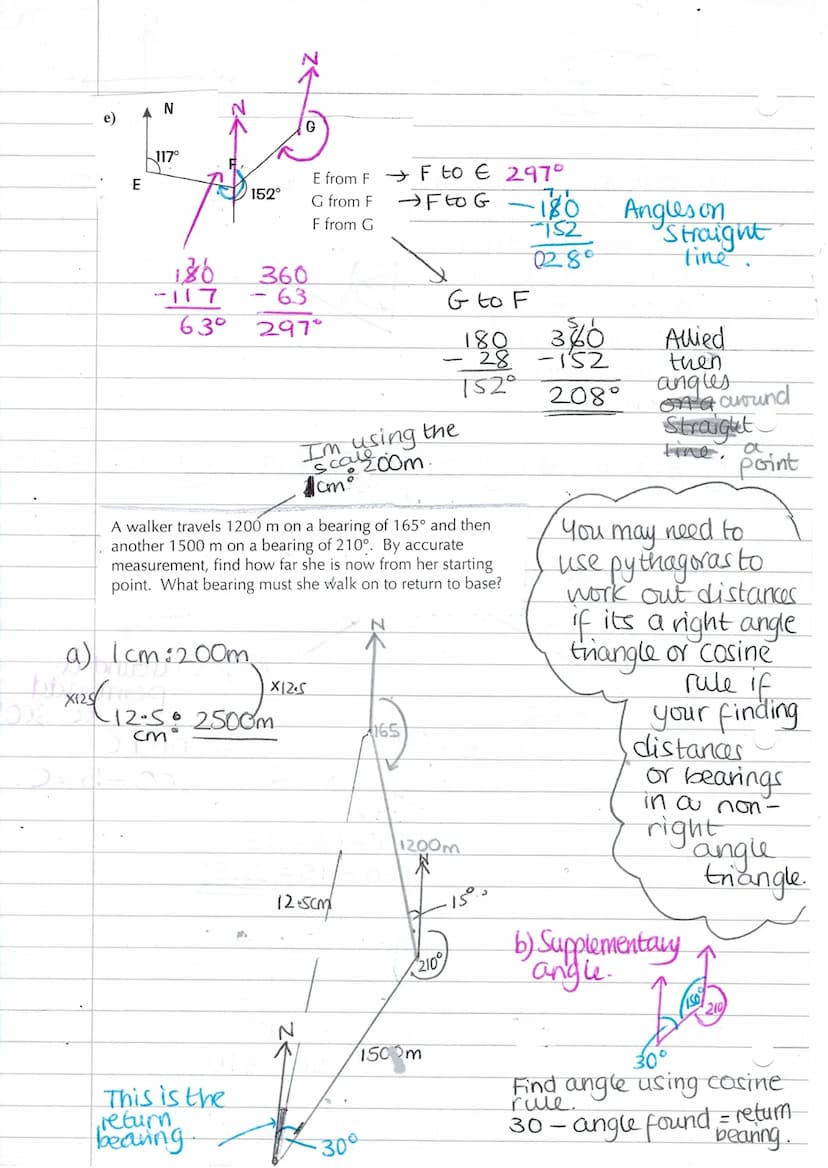 N
e) N N
117°
G
F
E
152°
E from F → F to E 297°
G from F → F to G – 180 Angles on
F from G -152 Straight
028° line.
180 360
-117 - 63
63° 297°
G to F
180 360 Allied
- 28 -152 then
152° 208° angles
on a around
Straight
line. a
point
Im using the
scale
1cm : 200m.
A walker travels 1200 m on a bearing of 165° and then
another 1500 m on a bearing of 210°. By accurate
measurement, find how far she is now from her starting
point. What bearing must she walk on to return to base?
You may need to
use pythagoras to
work out distances
if its a right angle
triangle or cosine
rule if
your finding
distances
or bearings
in a non-
right
angle
triangle.
N
a) 1cm : 200m
x12.5 x12.5
12.5 : 2500m
cm
165
1200m
N
12.5cm
15°
210°
b) Supplementary
angle.
150°
210
30°
1500m
N
Find angle using cosine
rule.
30 – angle found = return
bearing.
This is the
return
bearing.
30°